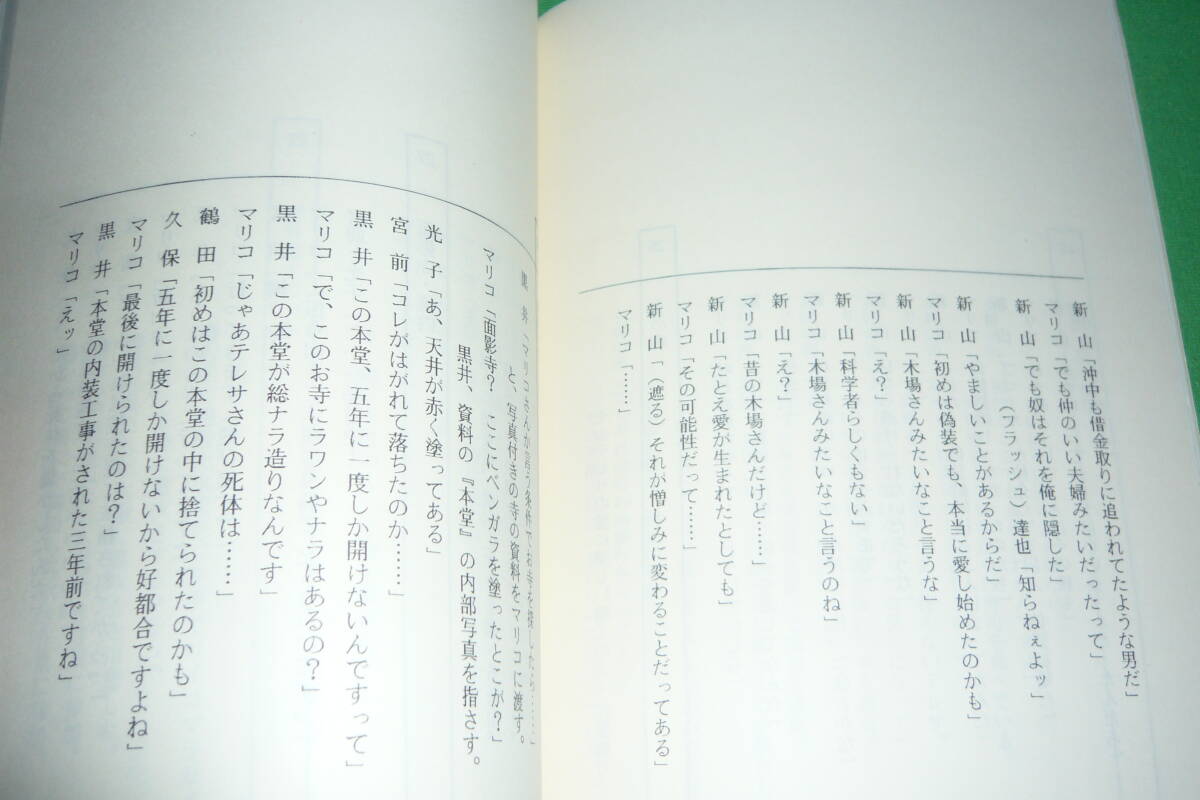 新　山「沖中も借金取りに追われてたような男だ」
マリコ「でも仲のいい夫婦みたいだったって」
新　山「でも奴はそれを俺に隠した」
（フラッシュ）達也「知らねぇよッ」
新　山「やましいことがあるからだ」
マリコ「初めは偽装でも、本当に愛し始めたのかも」
新　山「木場さんみたいなこと言うな」
マリコ「え？」
新　山「科学者らしくもない」
マリコ「木場さんみたいなこと言うのね」
新　山「え？」
マリコ「昔の木場さんだけど……」
新　山「たとえ愛が生まれたとしても」
マリコ「その可能性だって……」
新　山「（遮る）それが憎しみに変わることだってある」
マリコ「……」
黒　井「マリコさんが言う条件でお寺を探したら……」
と、写真付きの寺の資料をマリコに渡す。
マリコ「面影寺？　ここにベンガラを塗ったとこが？」
黒井、資料の『本堂』の内部写真を指さす。
光　子「あ、天井が赤く塗ってある」
宮　前「コレがはがれて落ちたのか……」
黒　井「この本堂、五年に一度しか開けないんですって」
マリコ「で、このお寺にラワンやナラはあるの？」
黒　井「この本堂が総ナラ造りなんです」
マリコ「じゃあテレサさんの死体は……」
鶴　田「初めはこの本堂の中に捨てられたのかも」
久　保「五年に一度しか開けないから好都合ですよね」
マリコ「最後に開けられたのは？」
黒　井「本堂の内装工事がされた三年前ですね」
マリコ「えッ」